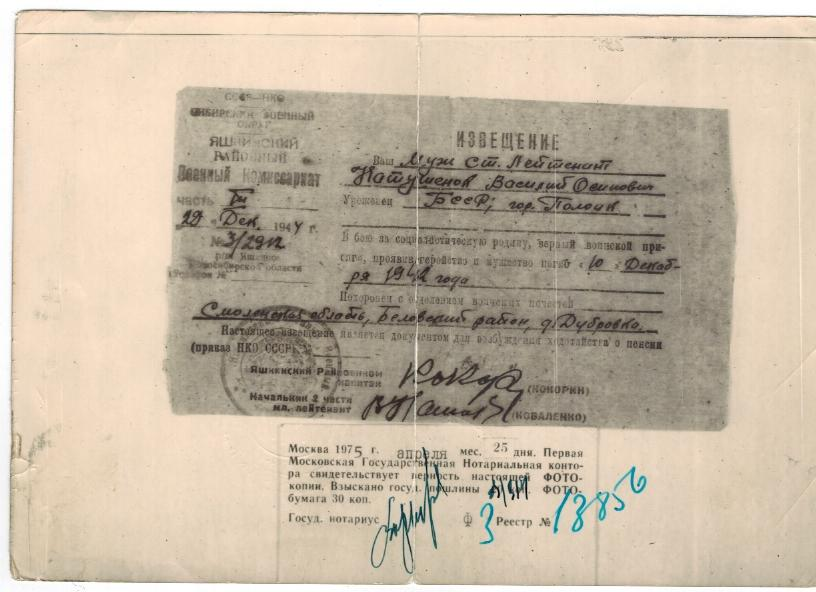 СССР—НКО
СИБИРСКИЙ ВОЕННЫЙ
ОКРУГ
ЯШКИНСКИЙ
РАЙОННЫЙ
Военный Комиссариат
часть III
29 Дек. 1944 г.
№ 3/2912
Новосибирской области
ИЗВЕЩЕНИЕ
Ваш Муж Ст. Лейтенант
Натушенок Василий Осипович
Уроженец БССР, гор. Полоцк
В бою за социалистическую родину, верный воинской при-
сяге, проявив геройство и мужество погиб „10" Декаб-
ря 1942 года
Похоронен с отданием воинских почестей
Смоленская область, Бельский район, д. Дубровка.
Настоящее извещение является документом для возбуждения ходатайства о пенсии
(приказ НКО СССР
Яшкинский Райвоенком
капитан (КОКОРИН)
Начальник 2 части
мл. лейтенант (КОВАЛЕНКО)
Москва 1975 г. апреля мес. 25 дня. Первая
Московская Государственная Нотариальная конто-
ра свидетельствует верность настоящей ФОТО-
копии. Взыскано госуд. пошлины ФОТО-
бумага 30 коп.
Госуд. нотариус Ф 3 Реестр № 13856